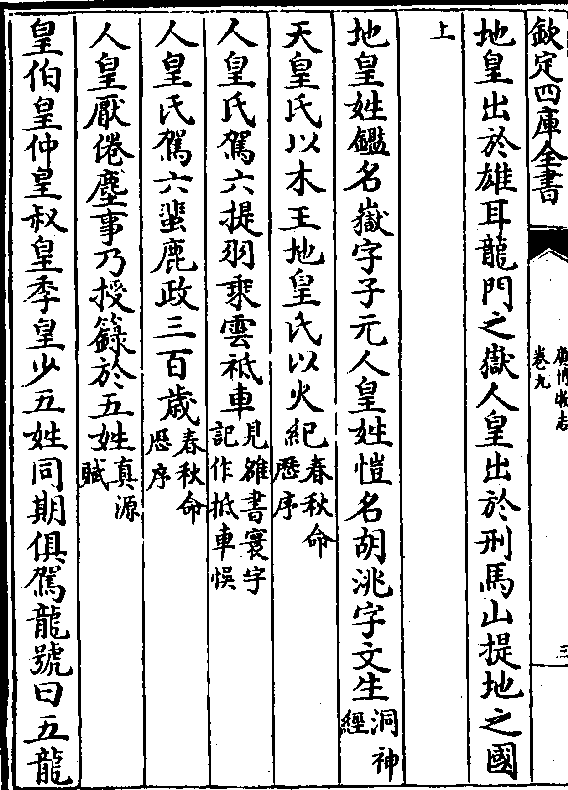 欽定四庫全書
廣博物志
卷九
三
地皇出於雄耳龍門之嶽人皇出於刑馬山提地之國
上
地皇姓鑑名嶽字子元人皇姓愷名胡洮字文生洞神經
天皇氏以木王地皇氏以火紀春秋命歷序
人皇氏駕六提羽乘雲祗車見雒書寰宇記作抵車悞
人皇氏駕六蜚鹿政三百歲春秋命歷序
人皇厭倦塵事乃授籙於五姓真源賦
皇伯皇仲皇叔皇季皇少五姓同期俱駕龍號曰五龍